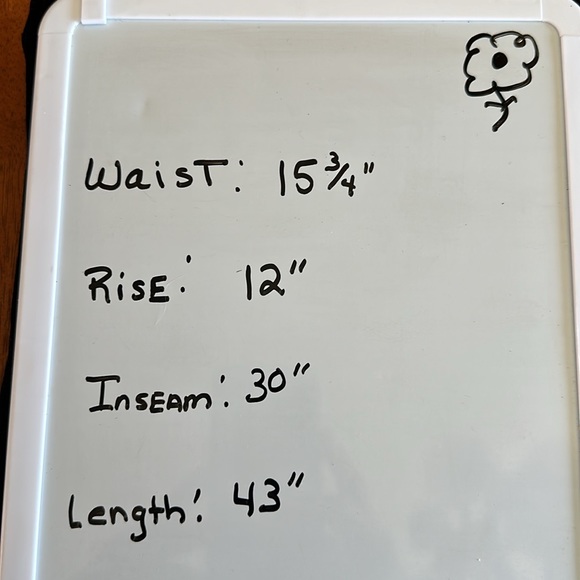 Waist: 15 3/4"
Rise: 12"
Inseam: 30"
Length: 43"